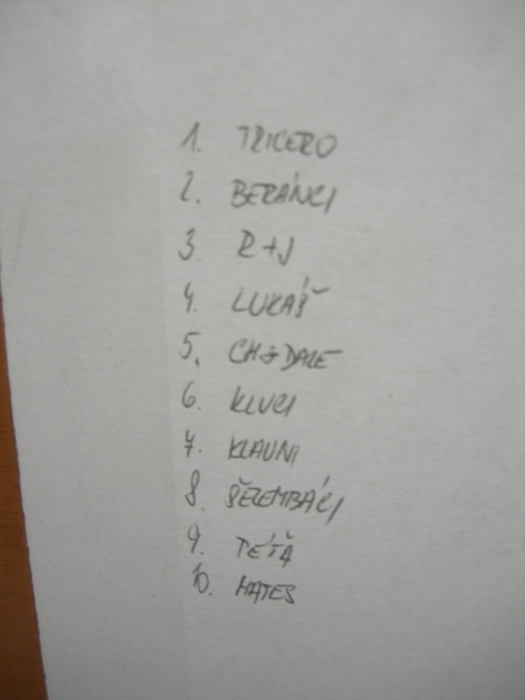 1. TRICERO
2. BERÁNCI
3. R+J
4. LUKÁŠ
5.
6. KLUCI
7. KLAUNI
8. ŠELEMBÁCI
9. PÉŤA
10. MATES